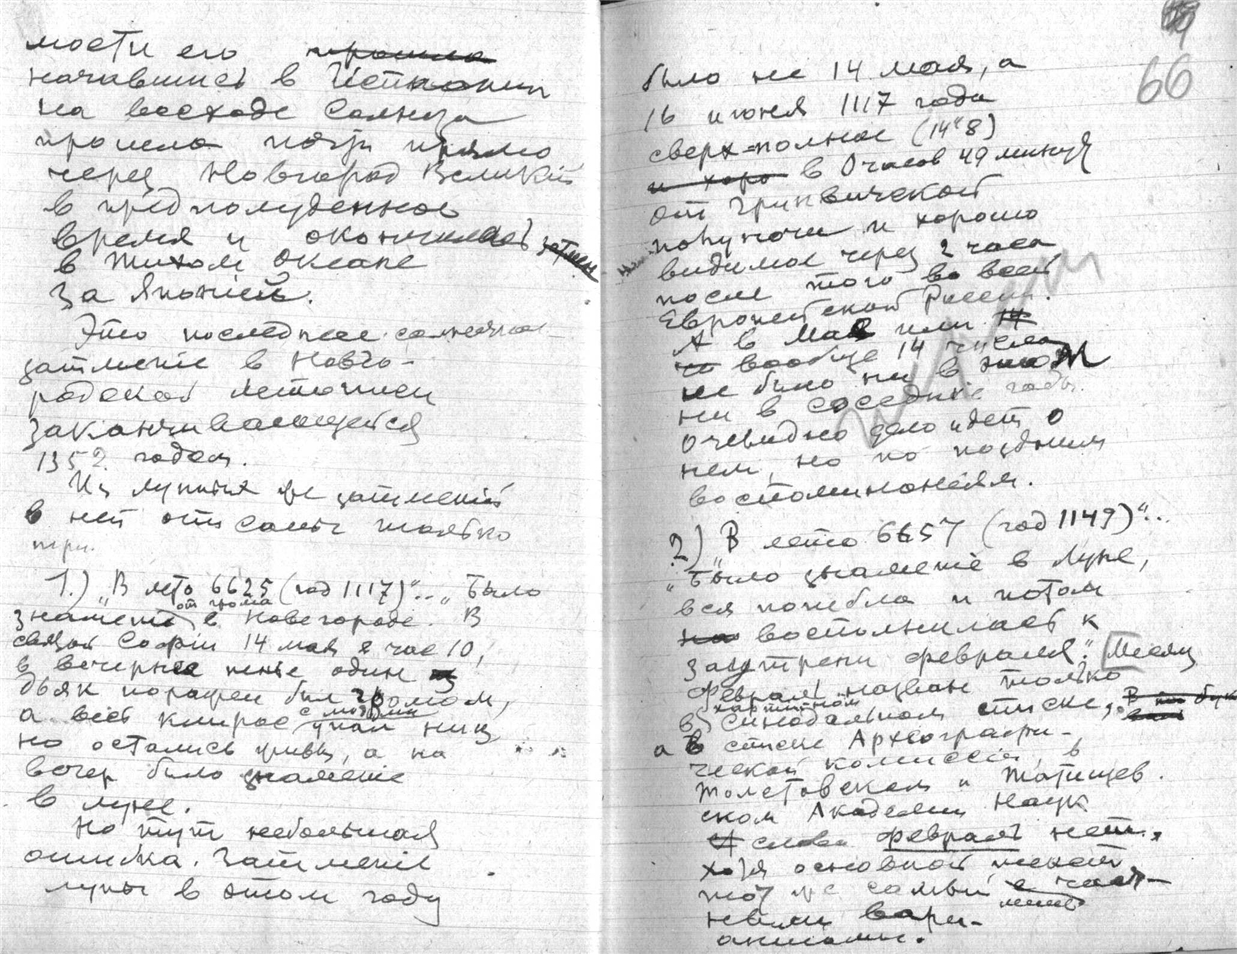 мости его прошла
начавшись в Испании
на восходе Солнца
прошла почти прямо
через Новгород Великий
в предполуденное
время и окончилась
в Тихом Океане
за Японией.
Это последнее солнечное
затмение в Новго-
родской летописи
заканчивающейся
1352 годом.
Из лунных же затмений
в ней описаны только
три.
1.) „В лето 6625 (год 1117)"... „Было
знамение от грома в Новегороде. В
святой Софии 14 мая в час 10,
в вечернее пенье один
дьяк поражен был громом,
а весь клирос с людьми упал ниц
но остались живы, а на
вечер было знамение
в луне.
Но тут небольшая
ошибка. Затмение
луны в этом году
66
было не 14 мая, а
16 июня 1117 года
сверх-полное (14"8)
и хоро в 0 часов 49 минут
от Гринвической
полуночи и хорошо
видимое через 2 часа
после того во всей
Европейской России.
А в Мае или
вообще 14 числа
не было ни в
ни в соседние годы.
Очевидно дело идет о
нем, но по поздним
воспоминаниям.
2.) „В лето 6657 (год 1149)"...
„Было знамение в Луне,
вся погибла и потом
восполнилась к
заутрени февраля." Месяц
февраль назван только
в харатейном синодальном списке,
а в списке Археографи-
ческой комиссии, в
Толстовском и Татищев
ском Академии Наук
слова февраль нет,
хотя основной текст
тот же самый с
ными вари-
антами.